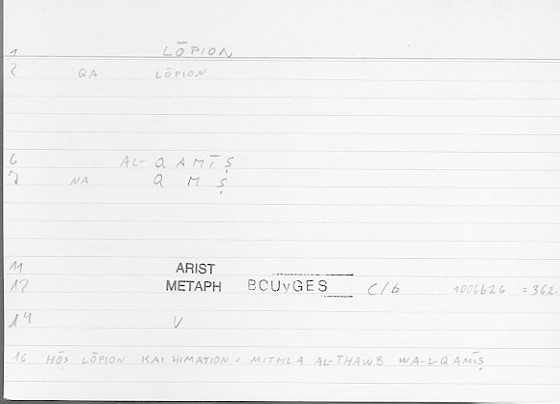 1 LŌPION
2 QA LŌPION
6 AL-QAMĪṢ
7 NA QMṢ
11 ARIST
12 METAPH BOUyGES C/b 1006b26 =362.
14 V
16 HŌS LŌPION KAI HIMATION : MITHLA AL-THAWB WA-L-QAMĪṢ